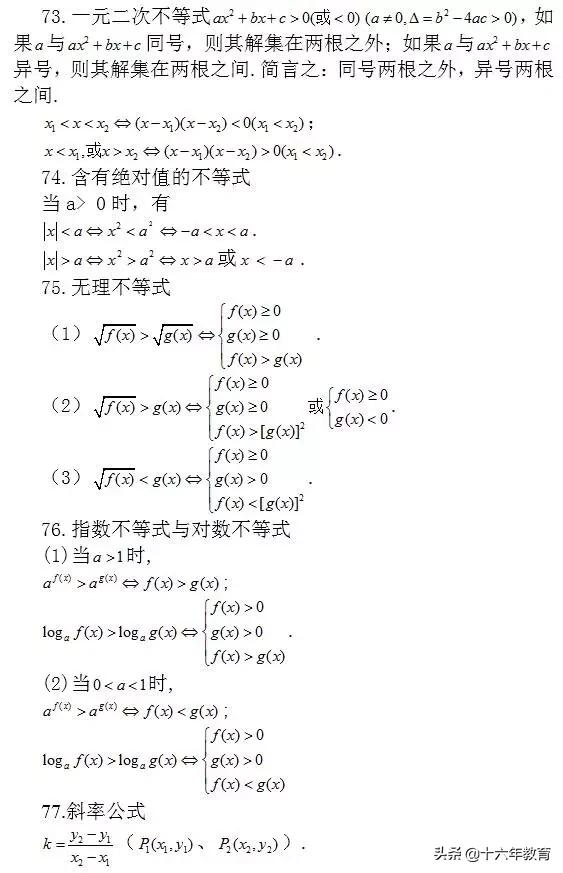 73.一元二次不等式ax²+bx+c>0(或<0)(a≠0,Δ=b²−4ac>0),如
果a与ax²+bx+c同号,则其解集在两根之外;如果a与ax²+bx+c
异号,则其解集在两根之间.简言之:同号两根之外,异号两根
之间.
x₁<x<x₂⇔(x−x₁)(x−x₂)<0(x₁<x₂);
x<x₁,或x>x₂⇔(x−x₁)(x−x₂)>0(x₁<x₂).
74.含有绝对值的不等式
当a> 0时,有
|x|<a⇔x²<a²⇔−a<x<a.
|x|>a⇔x²>a²⇔x>a或x<−a.
75.无理不等式
(1)√f(x)>√g(x)⇔{f(x)≥0
g(x)≥0
f(x)>g(x).
(2)√f(x)>g(x)⇔{f(x)≥0
g(x)≥0
f(x)>[g(x)]²
或{f(x)≥0
g(x)<0.
(3)√f(x)<g(x)⇔{f(x)≥0
g(x)>0
f(x)<[g(x)]².
76.指数不等式与对数不等式
(1)当a>1时,
a^f(x)>a^g(x)⇔f(x)>g(x);
logₐf(x)>logₐg(x)⇔{f(x)>0
g(x)>0
f(x)>g(x).
(2)当0<a<1时,
a^f(x)>a^g(x)⇔f(x)<g(x);
logₐf(x)>logₐg(x)⇔{f(x)>0
g(x)>0
f(x)<g(x)
77.斜率公式
k=(y₂−y₁)/(x₂−x₁)(P₁(x₁,y₁)、P₂(x₂,y₂)).
头条@十六年教育